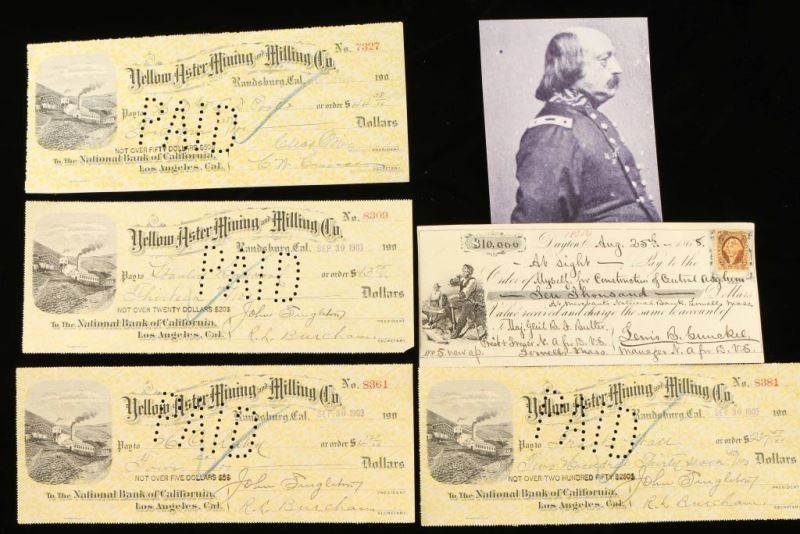 No. 7327
Yellow Aster Mining and Milling Co.
Randsburg, Cal. 190
PAID
Pay to
or order $44
Dollars
NOT OVER FIFTY DOLLARS $50$
PRESIDENT
To The National Bank of California,
Los Angeles, Cal.
SECRETARY
No. 8309
Yellow Aster Mining and Milling Co.
Randsburg, Cal. SEP 30 1903 190
PAID
Pay to
or order $13
Thirteen
Dollars
NOT OVER TWENTY DOLLARS $20$
John Singleton
PRESIDENT
To The National Bank of California,
R.L. Burcham
Los Angeles, Cal.
SECRETARY
No. 8361
Yellow Aster Mining and Milling Co.
Randsburg, Cal. SEP 30 1903 190
PAID
Pay to
or order $4
Four
Dollars
NOT OVER FIVE DOLLARS $5$
John Singleton
PRESIDENT
To The National Bank of California,
R.L. Burcham
Los Angeles, Cal.
SECRETARY
$10,000
Dayton Aug. 25th 1868.
At sight Pay to the
Order of Myself, for Construction of Central Asylum
Ten Thousand Dollars
At Merchants National Bank, Lowell, Mass
Value received and charge the same to account of
To Maj. Genl B. F. Butler,
Prest & Treas N. A. for D. V. S.
Lowell Mass
Lewis B. Gunckel
Manager N. A. for D. V. S.
No. 8381
Yellow Aster Mining and Milling Co.
Randsburg, Cal. SEP 30 1903 190
PAID
Pay to
or order $237
Two Hundred Thirty seven
Dollars
NOT OVER TWO HUNDRED FIFTY $250$
John Singleton
PRESIDENT
To The National Bank of California,
R.L. Burcham
Los Angeles, Cal.
SECRETARY